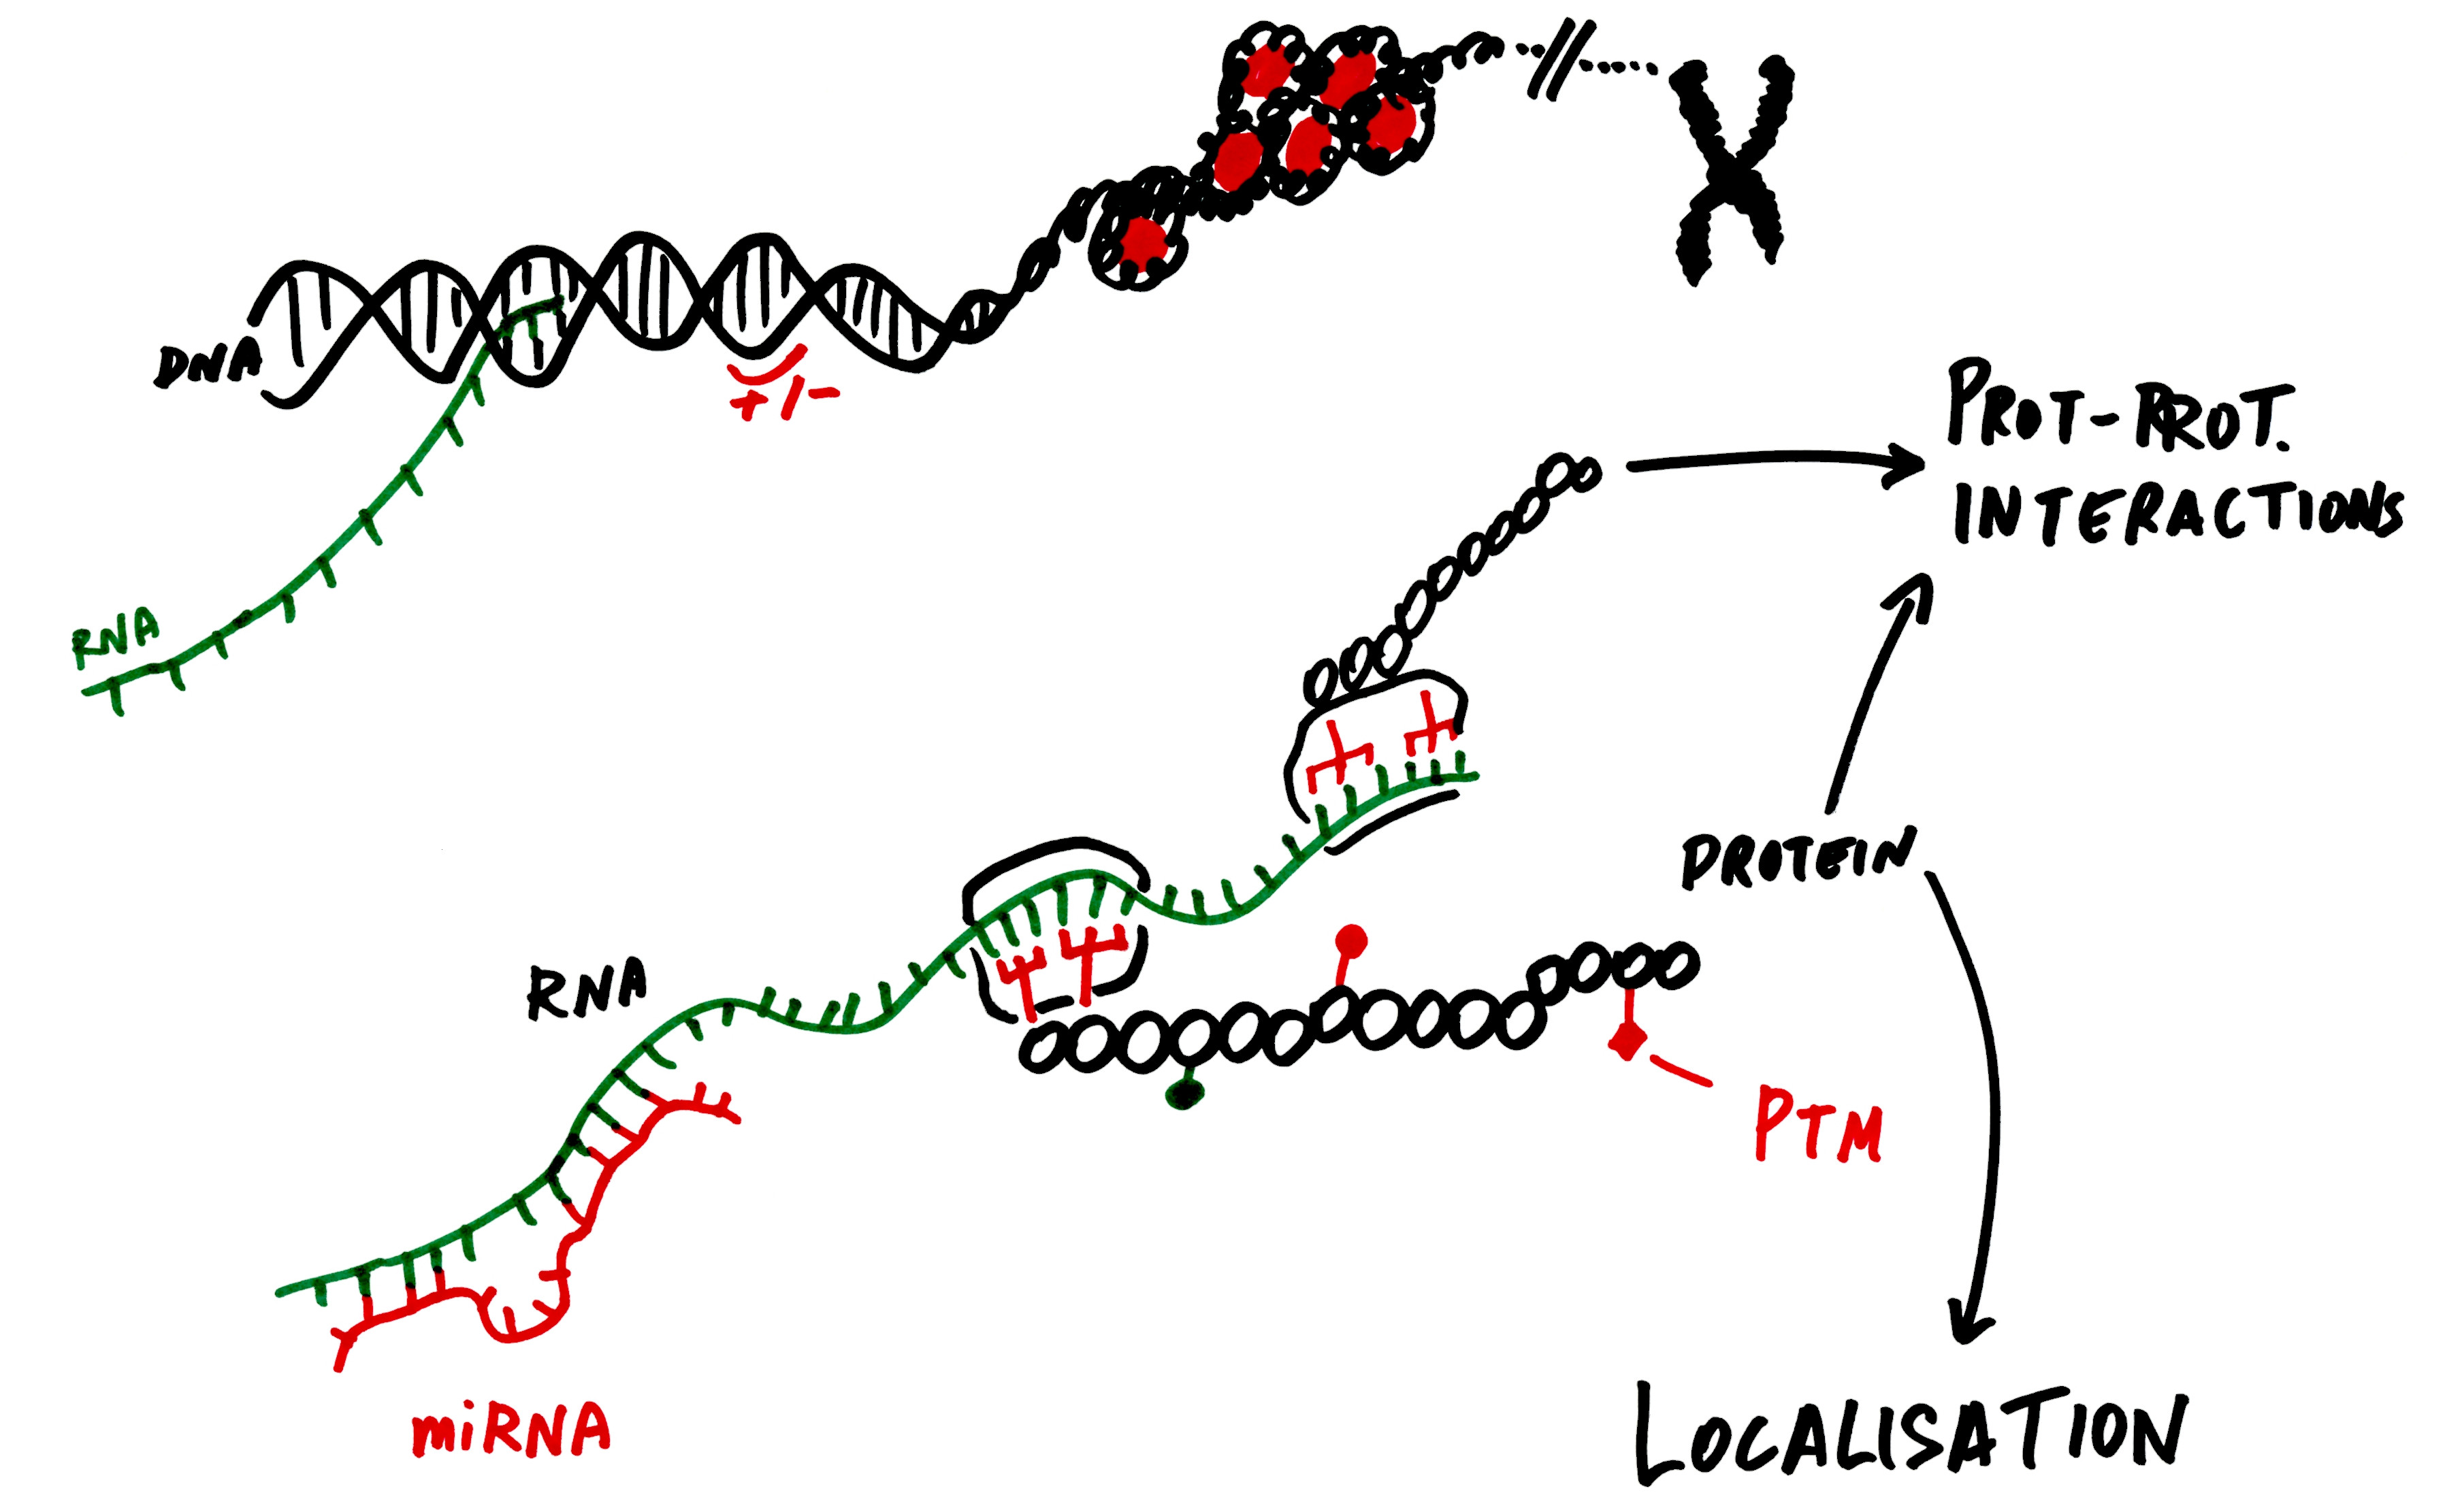 DNA
+/-
RNA
PROT-PROT.
INTERACTIONS
PROTEIN
RNA
PTM
miRNA
LOCALISATION